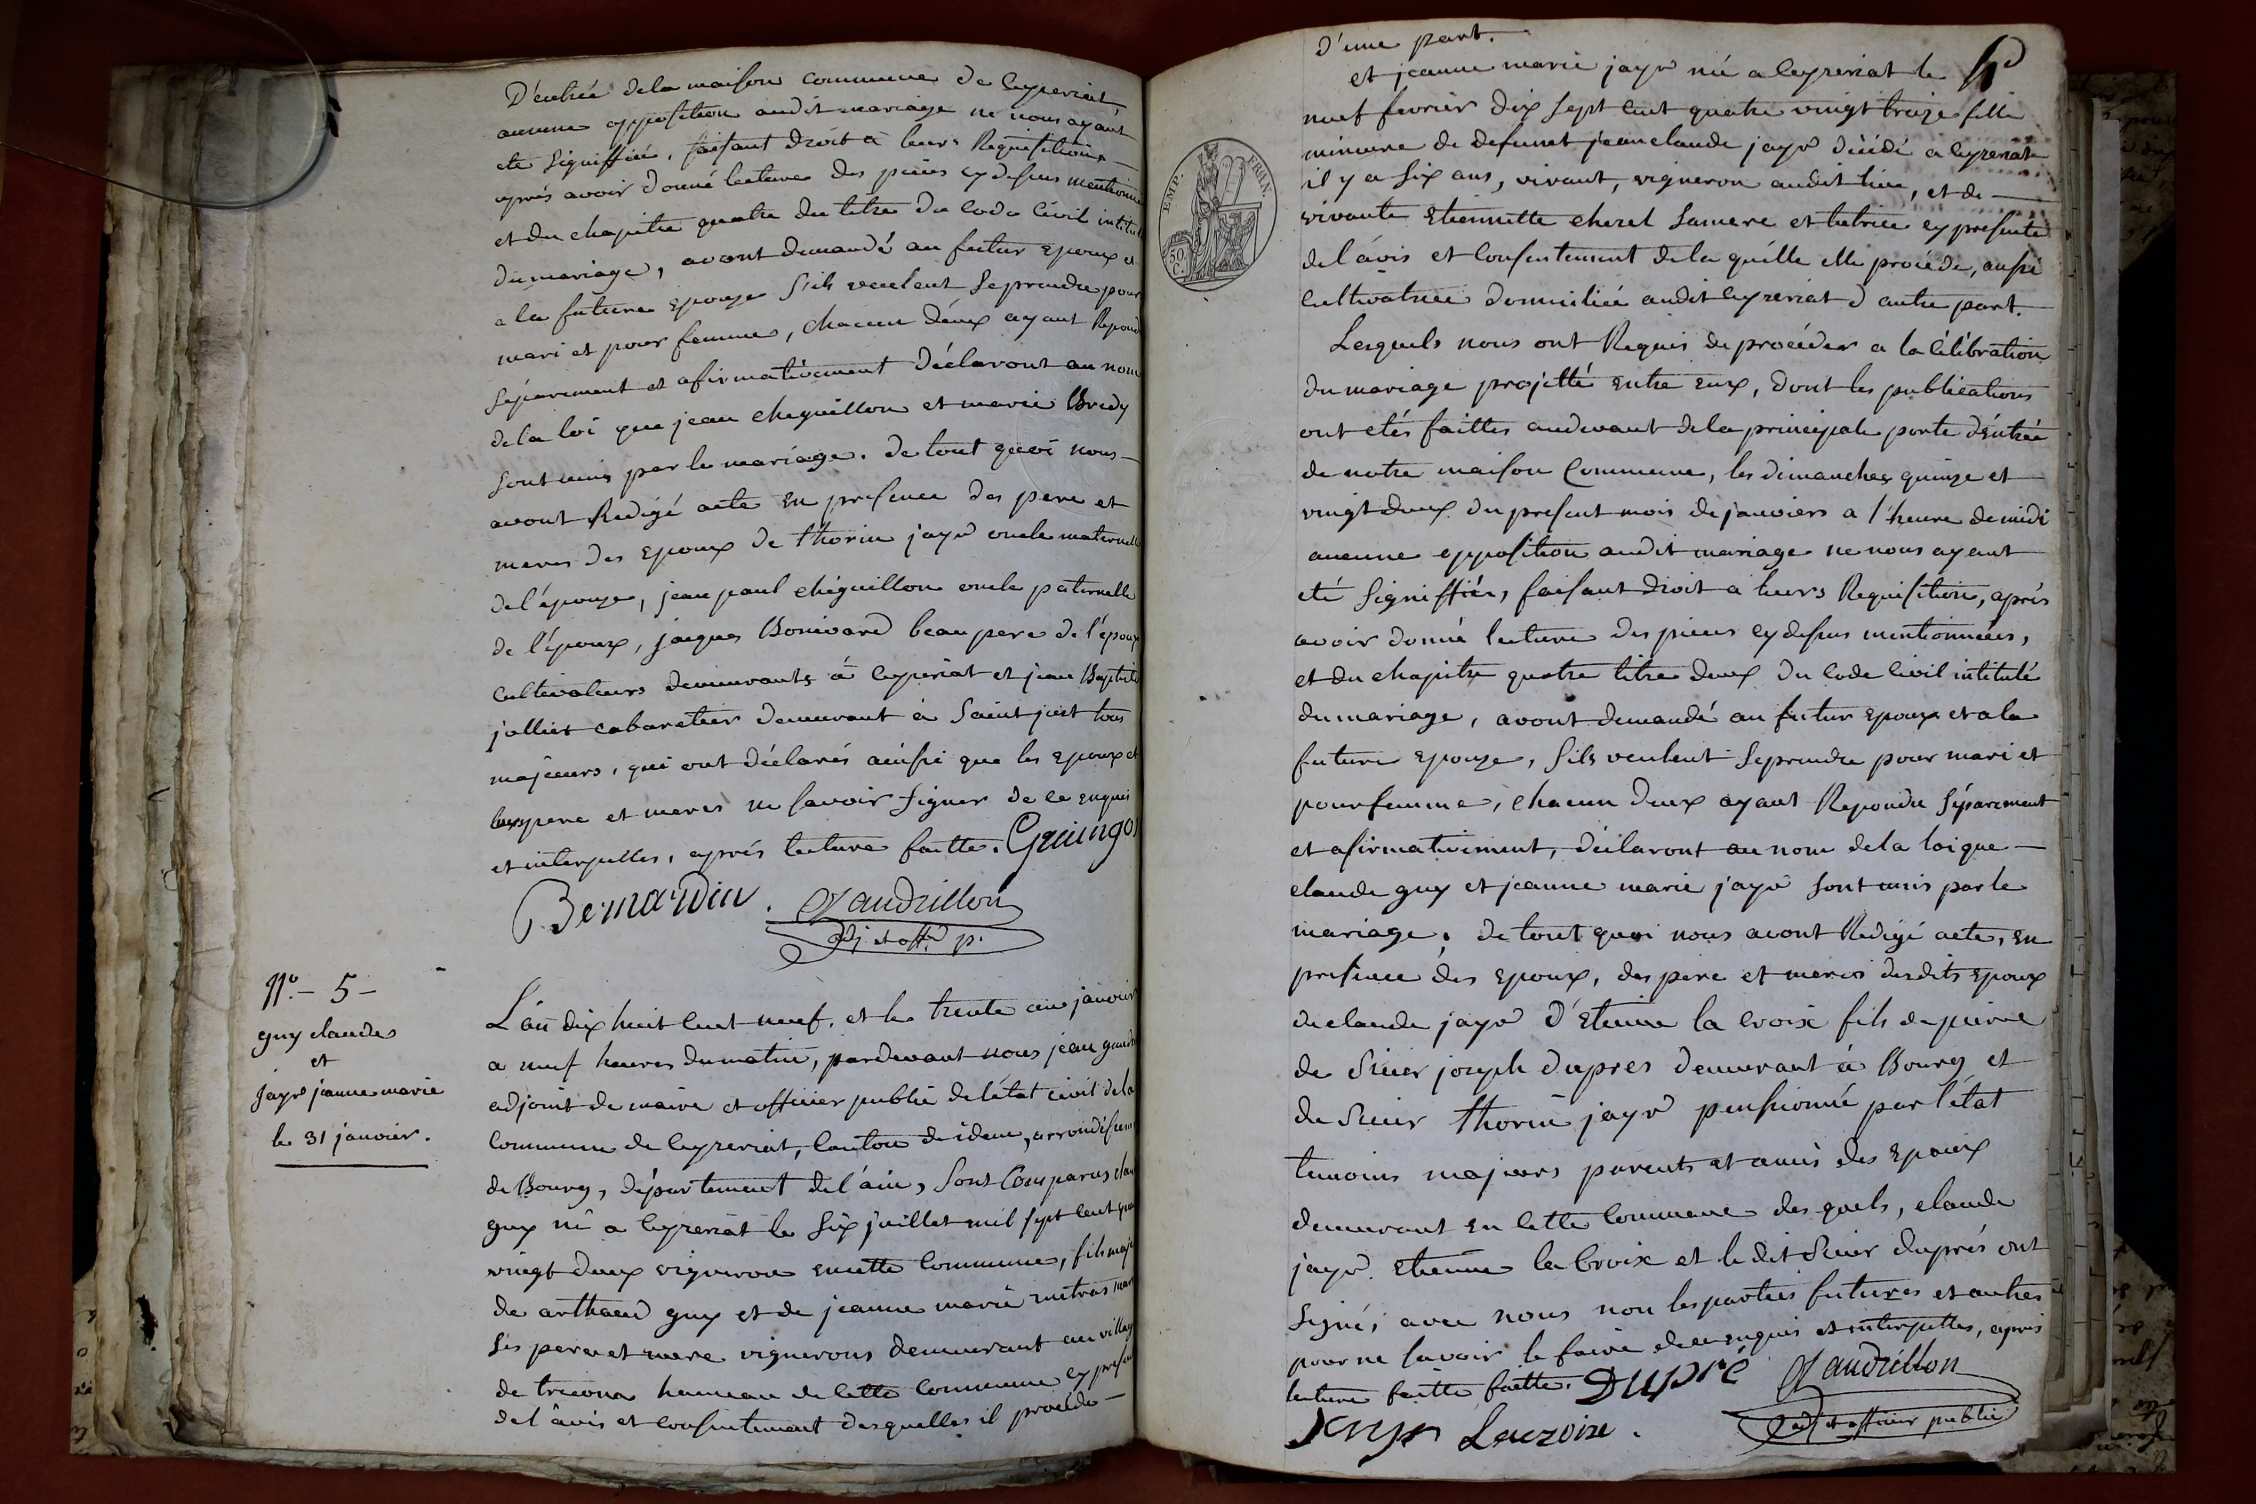 D'entrée dela maison commune de Ceyzeriat
aucune opposition audit mariage ne nous ayant
eté signiffiée, faisant droit à leurs Requisitions
aprés avoir donné lecture des pieces cy dessus mentionné
et du chapitre quatre du titre du Code Civil intitulé
du mariage, avont demandé au futur epoux et
a la future epouze s'ils veulent se prendre pour
mari et pour femme, chacun d'eux ayant Repondu
séparement et afirmativement déclaront au nom
dela loi que jean cheguillon et marie Bredy
sont unis par le mariage. de tout quoi nous
avont Redigé acte en presence des pere et
meres des epoux de thorin jayr oncle maternelle
del'épouze, jean paul chéguillon oncle paternelle
de l'époux, jacques Bonivard beau pere de l'époux
cultivateurs demeurants à ceyzeriat et jean Baptiste
jolliet cabaretier demeurant à Saint just tous
majeurs, qui ont déclarés ainsi que les epoux et
leurs pere et meres ne savoir signer de ce enquis
et interpelles, aprés lecture faitte. Gruingos
Bernardin. Gaudrillon
adj et off. p.
N.° - 5 -
guy claude
et
jayr jeanne marie
le 31 janvier.
L'an dix huit cent neuf, et le trente un janvier
a neuf heures du matin, pardevant nous jean gaudri
adjoint de maire et officier public de l'état civil dela
commune de Ceyzeriat, canton de idem, arrondissem
de Bourg, département del'ain, sont Comparus clau
guy né a Ceyzeriat le six juillet mil sept cent qua
vingt deux vigneron en cette Commune, fils maje
de arthaud guy et de jeanne marie mitras
ses pere et mere vignerons demeurant au villag
de treconna hameau de cette commune cy presen
del'avis et consentement desquelles il procéde
d'une part.
et jeanne marie jayr née a Ceyzeriat le
neuf fevrier dix sept cent quatre vingt treize fille
mineure de defunt jean claude jayr décédé a Ceyzeriat
il y a six ans, vivant, vigneron audit lieu, et de
vivante etiennette cherel sa mere et tutrice cy presente
del'avis et consentement dela quélle elle procéde, aussi
cultivatrice domiciliée audit Ceyzeriat d'autre part.
Lesquels nous ont Requis de procéder a la célébration
du mariage projetté entre eux, dont les publications
ont etés faittes audevant dela principale porte d'entrée
de notre maison Commune, les dimanches quinze et
vingt deux du present mois de janviers a l'heure de midi
aucune opposition audit mariage ne nous ayant
eté signiffiée, faisant droit a leurs Requisition, aprés
avoir donné lecture des pieces cy dessus mentionnées,
et du chapitre quatre titre deux du Code Civil intitulé
du mariage, avont demandé au futur epoux et a la
future epouze, s'ils veulent se prendre pour mari et
pour femme, chacun d'eux ayant Repondu séparement
et afirmativement, déclaront au nom dela loi que
claude guy et jeanne marie jayr sont unis par le
mariage. de tout quoi nous avont Redigé acte, en
presence des epoux, des pere et meres desdits epoux
de claude jayr d'etienne la croix fils de pierre
de sieur joseph dupres demeurant à Bourg et
de sieur thorin jayr pensionné par l'état
temoins majeurs parents et amis des epoux
demeurant en cette Commune des quels, claude
jayr. etienne la Croix et le dit sieur duprés ont
signés avec nous non les parties futures et autres
pour ne savoir le faire de ce enquis et interpelles, aprés
lecture faitte faitte. Dupré Gaudrillon
jayr Lacroix. adj et officier public
EMP. FRAN.
50 C.